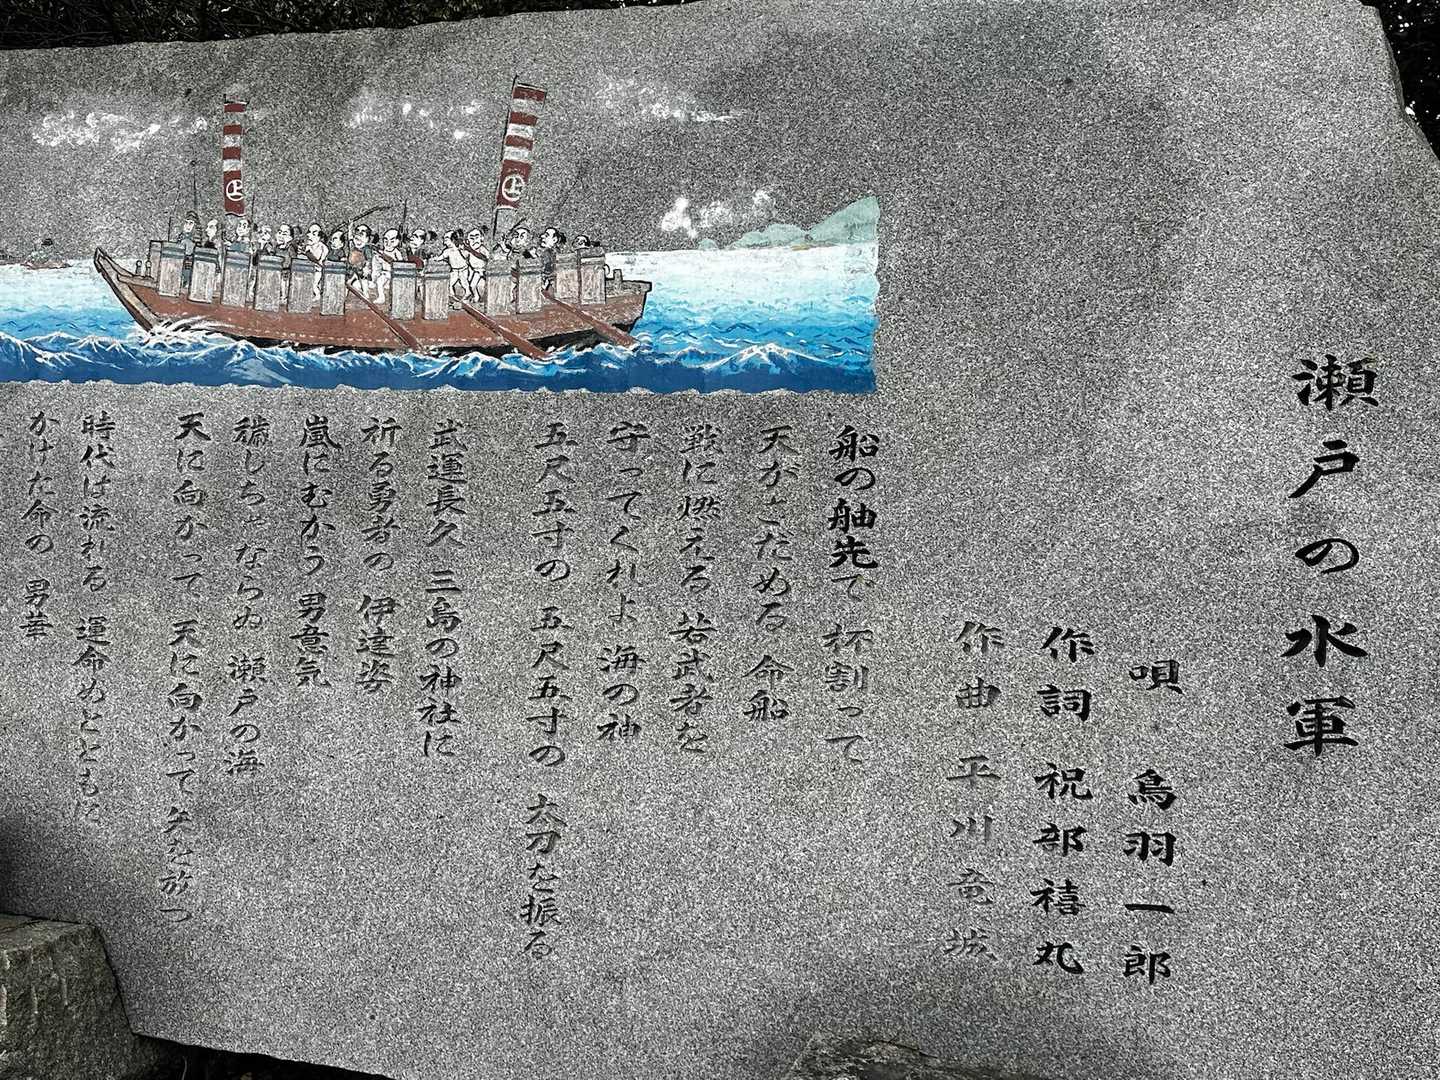 瀬戸の水軍
唄 鳥羽一郎
作詞 祝部禧丸
作曲 平川竜城
船の舳先で 杯割って
天がさだめる 命船
戦に燃える 若武者を
守ってくれよ 海の神
五尺五寸の 五尺五寸の 太刀を振る
武運長久 三島の神社に
祈る勇者の 伊達姿
嵐にむかう 男意気
穢しちゃならぬ 瀬戸の海
天に向かって、天に向かって 矢を放つ
時代は流れる 運命めとともに
かけた命の 男華
上
上